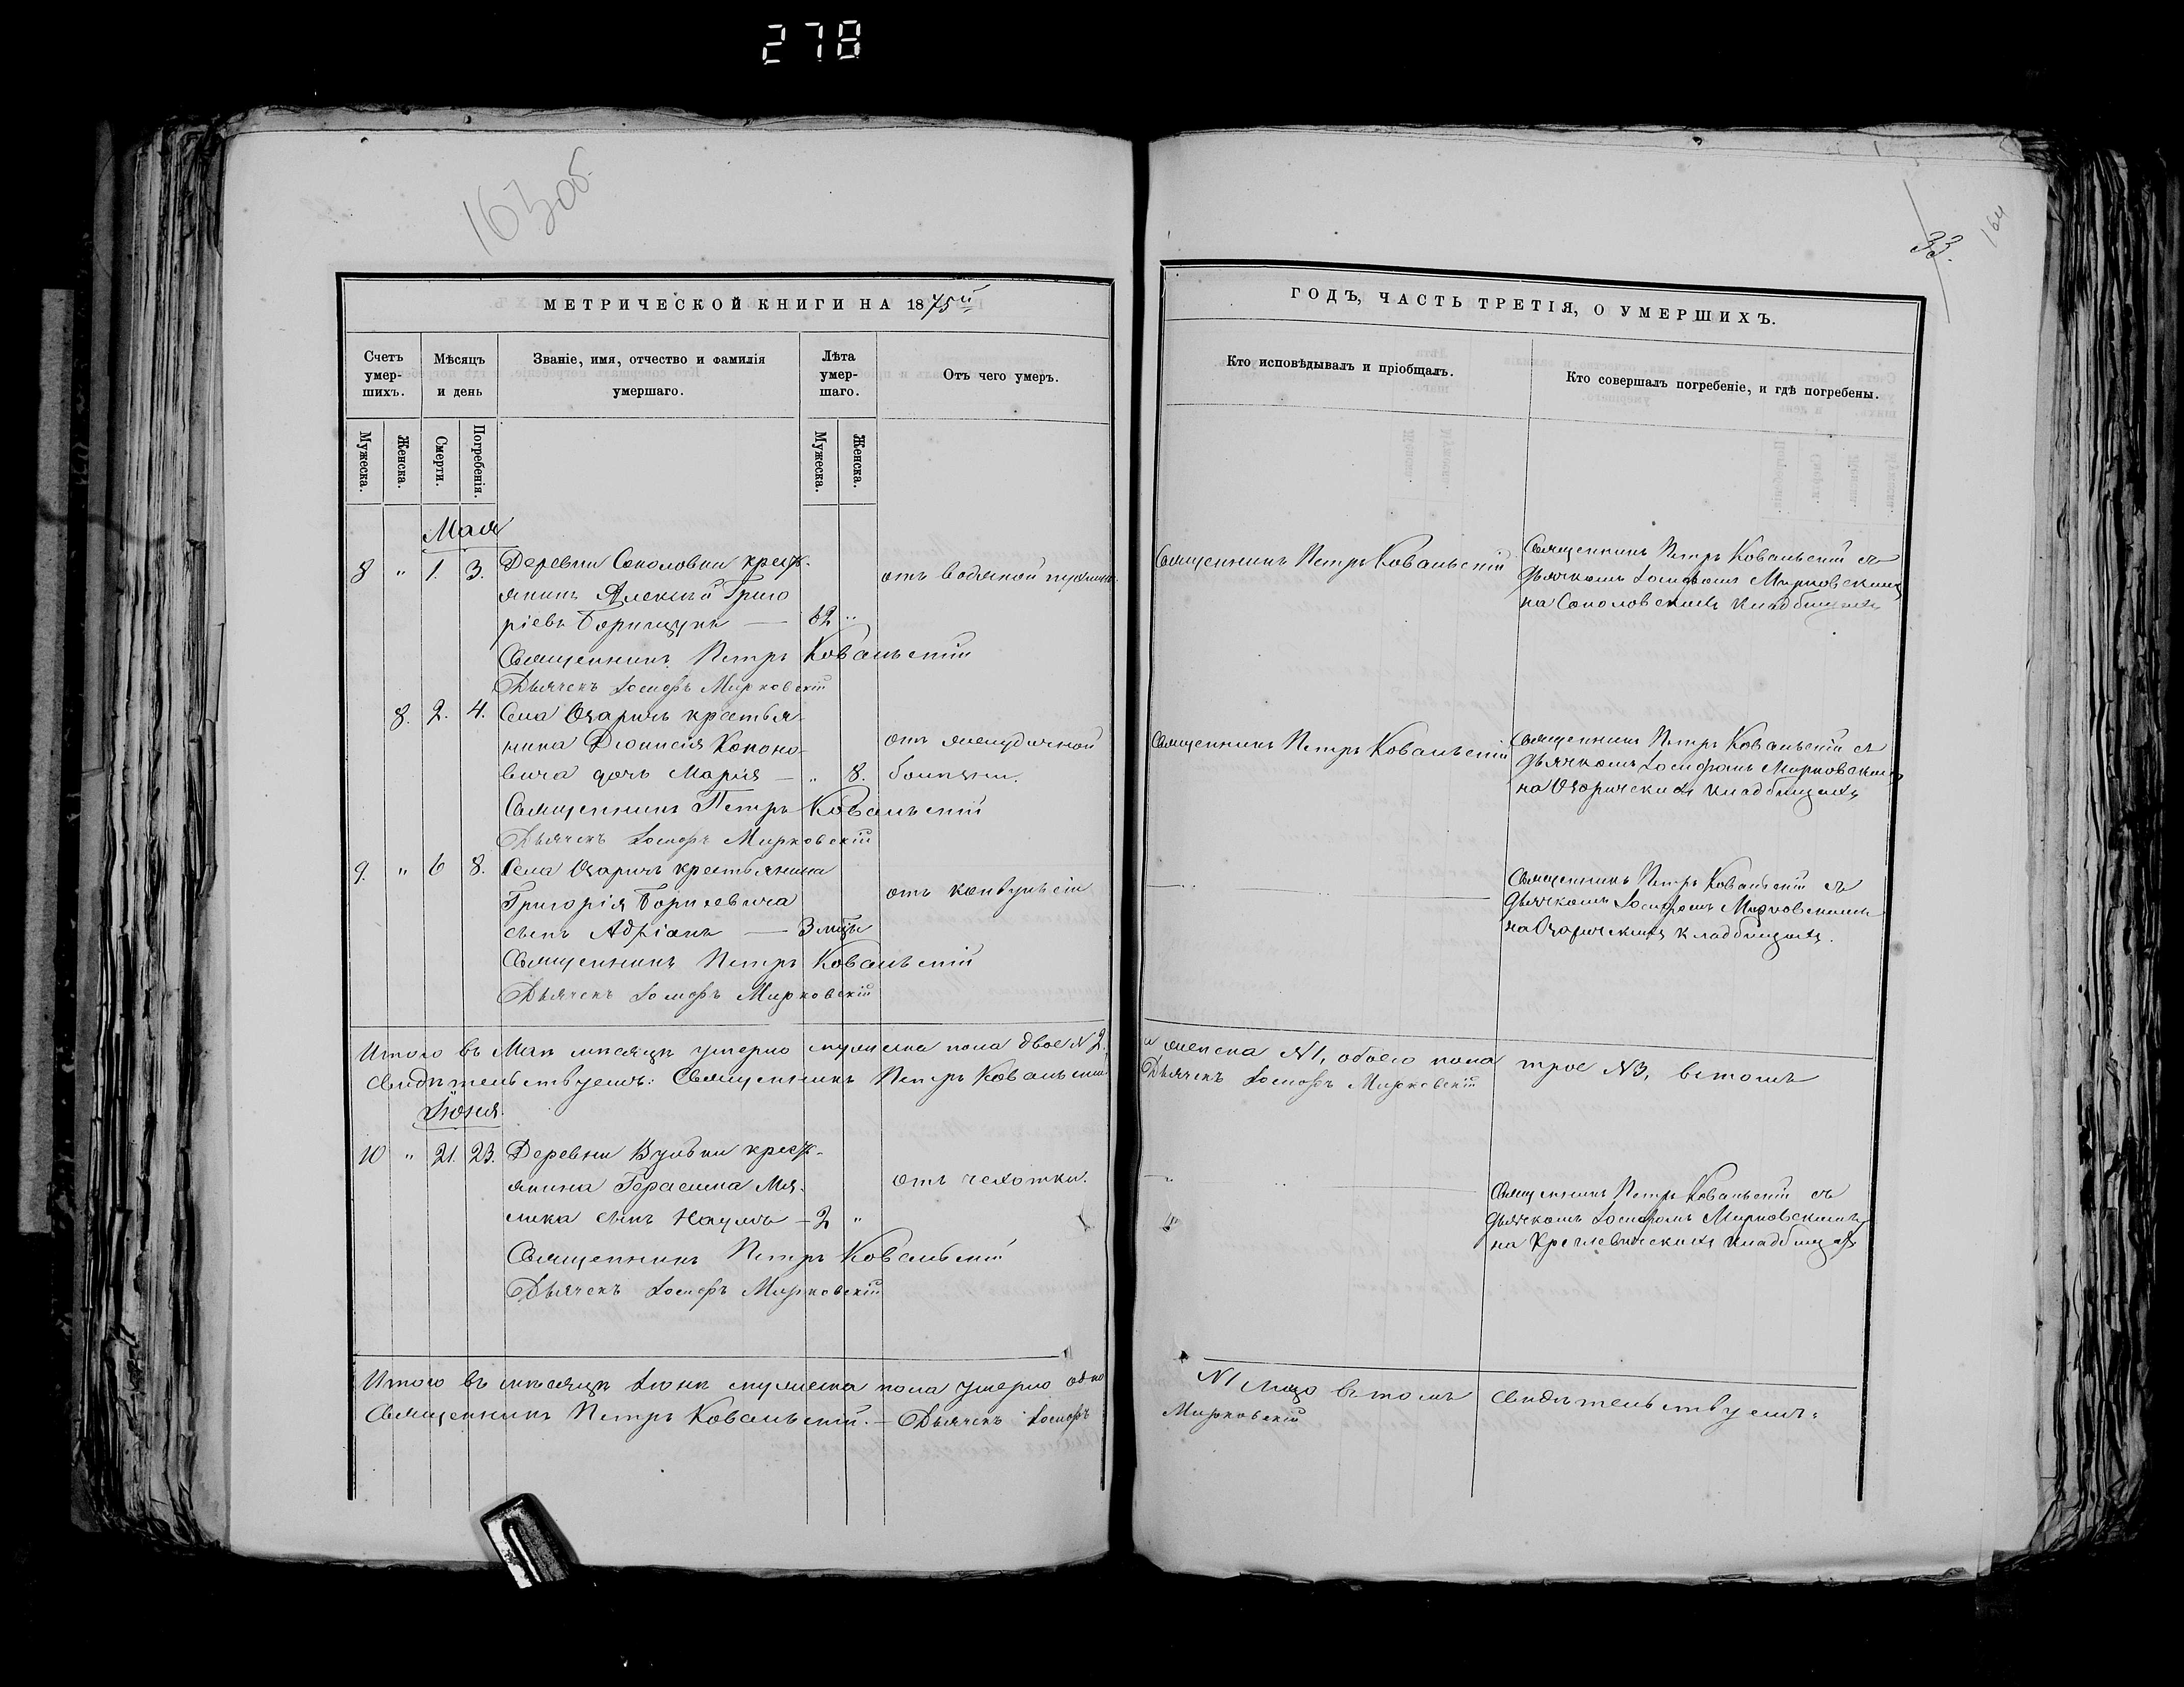 278
163об
МЕТРИЧЕСКОЙ КНИГИ НА 1875й
Счетъ умер-шихъ.
Мѣсяцъ и день
Званіе, имя, отчество и фамилія умершаго.
Лѣта умер-шаго.
Отъ чего умеръ.
Мужеска.
Женска.
Смерти.
Погребенія.
Мужеска.
Женска.
Мая
8 " 1. 3. Деревни Соколовки крест-
янинъ Алексѣй Григо
ріевъ Борищукъ — 62 "
отъ водяной
Священникъ Петръ Ковальскій
Дьячекъ Іосифъ Мирковскій
8. 2. 4. Села Озаричъ крестья-
нина Діонисія Кононо-
вича дочь Марія — " 8.
отъ
болезни.
Священникъ Петръ Ковальскій
Дьячекъ Іосифъ Мирковскій
9. " 6 8. Села Озаричъ крестьянина
Григорія Боричевича
сынъ Адріанъ — 3 мцы
отъ конвульсіи
Священникъ Петръ Ковальскій
Дьячекъ Іосифъ Мирковскій
Итого въ Маѣ мѣсяцѣ умерло мужеска пола двое N2.
свидѣтельствуемъ: Священникъ Петръ Ковальскій
Іюня.
10 " 21. 23. Деревни Вульки крест-
янина Герасима Мя-
лика сынъ Наумъ — 2 "
отъ чехотки.
Священникъ Петръ Ковальскій
Дьячекъ Іосифъ Мирковскій
Итого въ мѣсяцѣ Іюнѣ мужеска пола умерло одно
Священникъ Петръ Ковальскій. — Дьячекъ Іосифъ
33.
164
ГОДЪ, ЧАСТЬ ТРЕТІЯ, О УМЕРШИХЪ.
Кто исповѣдывалъ и пріобщалъ.
Кто совершалъ погребеніе, и гдѣ погребены.
Священникъ Петръ Ковальскій
Священникъ Петръ Ковальскій съ
дьячкомъ Іосифомъ Мирковскимъ
на Соколовскомъ кладбищѣ
Священникъ Петръ Ковальскій
Священникъ Петръ Ковальскій съ
дьячкомъ Іосифомъ Мирковскимъ
на Озаричскомъ кладбищѣ
Священникъ Петръ Ковальскій съ
дьячкомъ Іосифомъ Мирковскимъ
на Озаричскомъ кладбищѣ.
и женска N1, обоего пола трое N3, въ томъ
Дьячекъ Іосифъ Мирковскій
Священникъ Петръ Ковальскій съ
дьячкомъ Іосифомъ Мирковскимъ
на кладбищѣ
N1 лицо въ томъ свидѣтельствуемъ:
Мирковскій